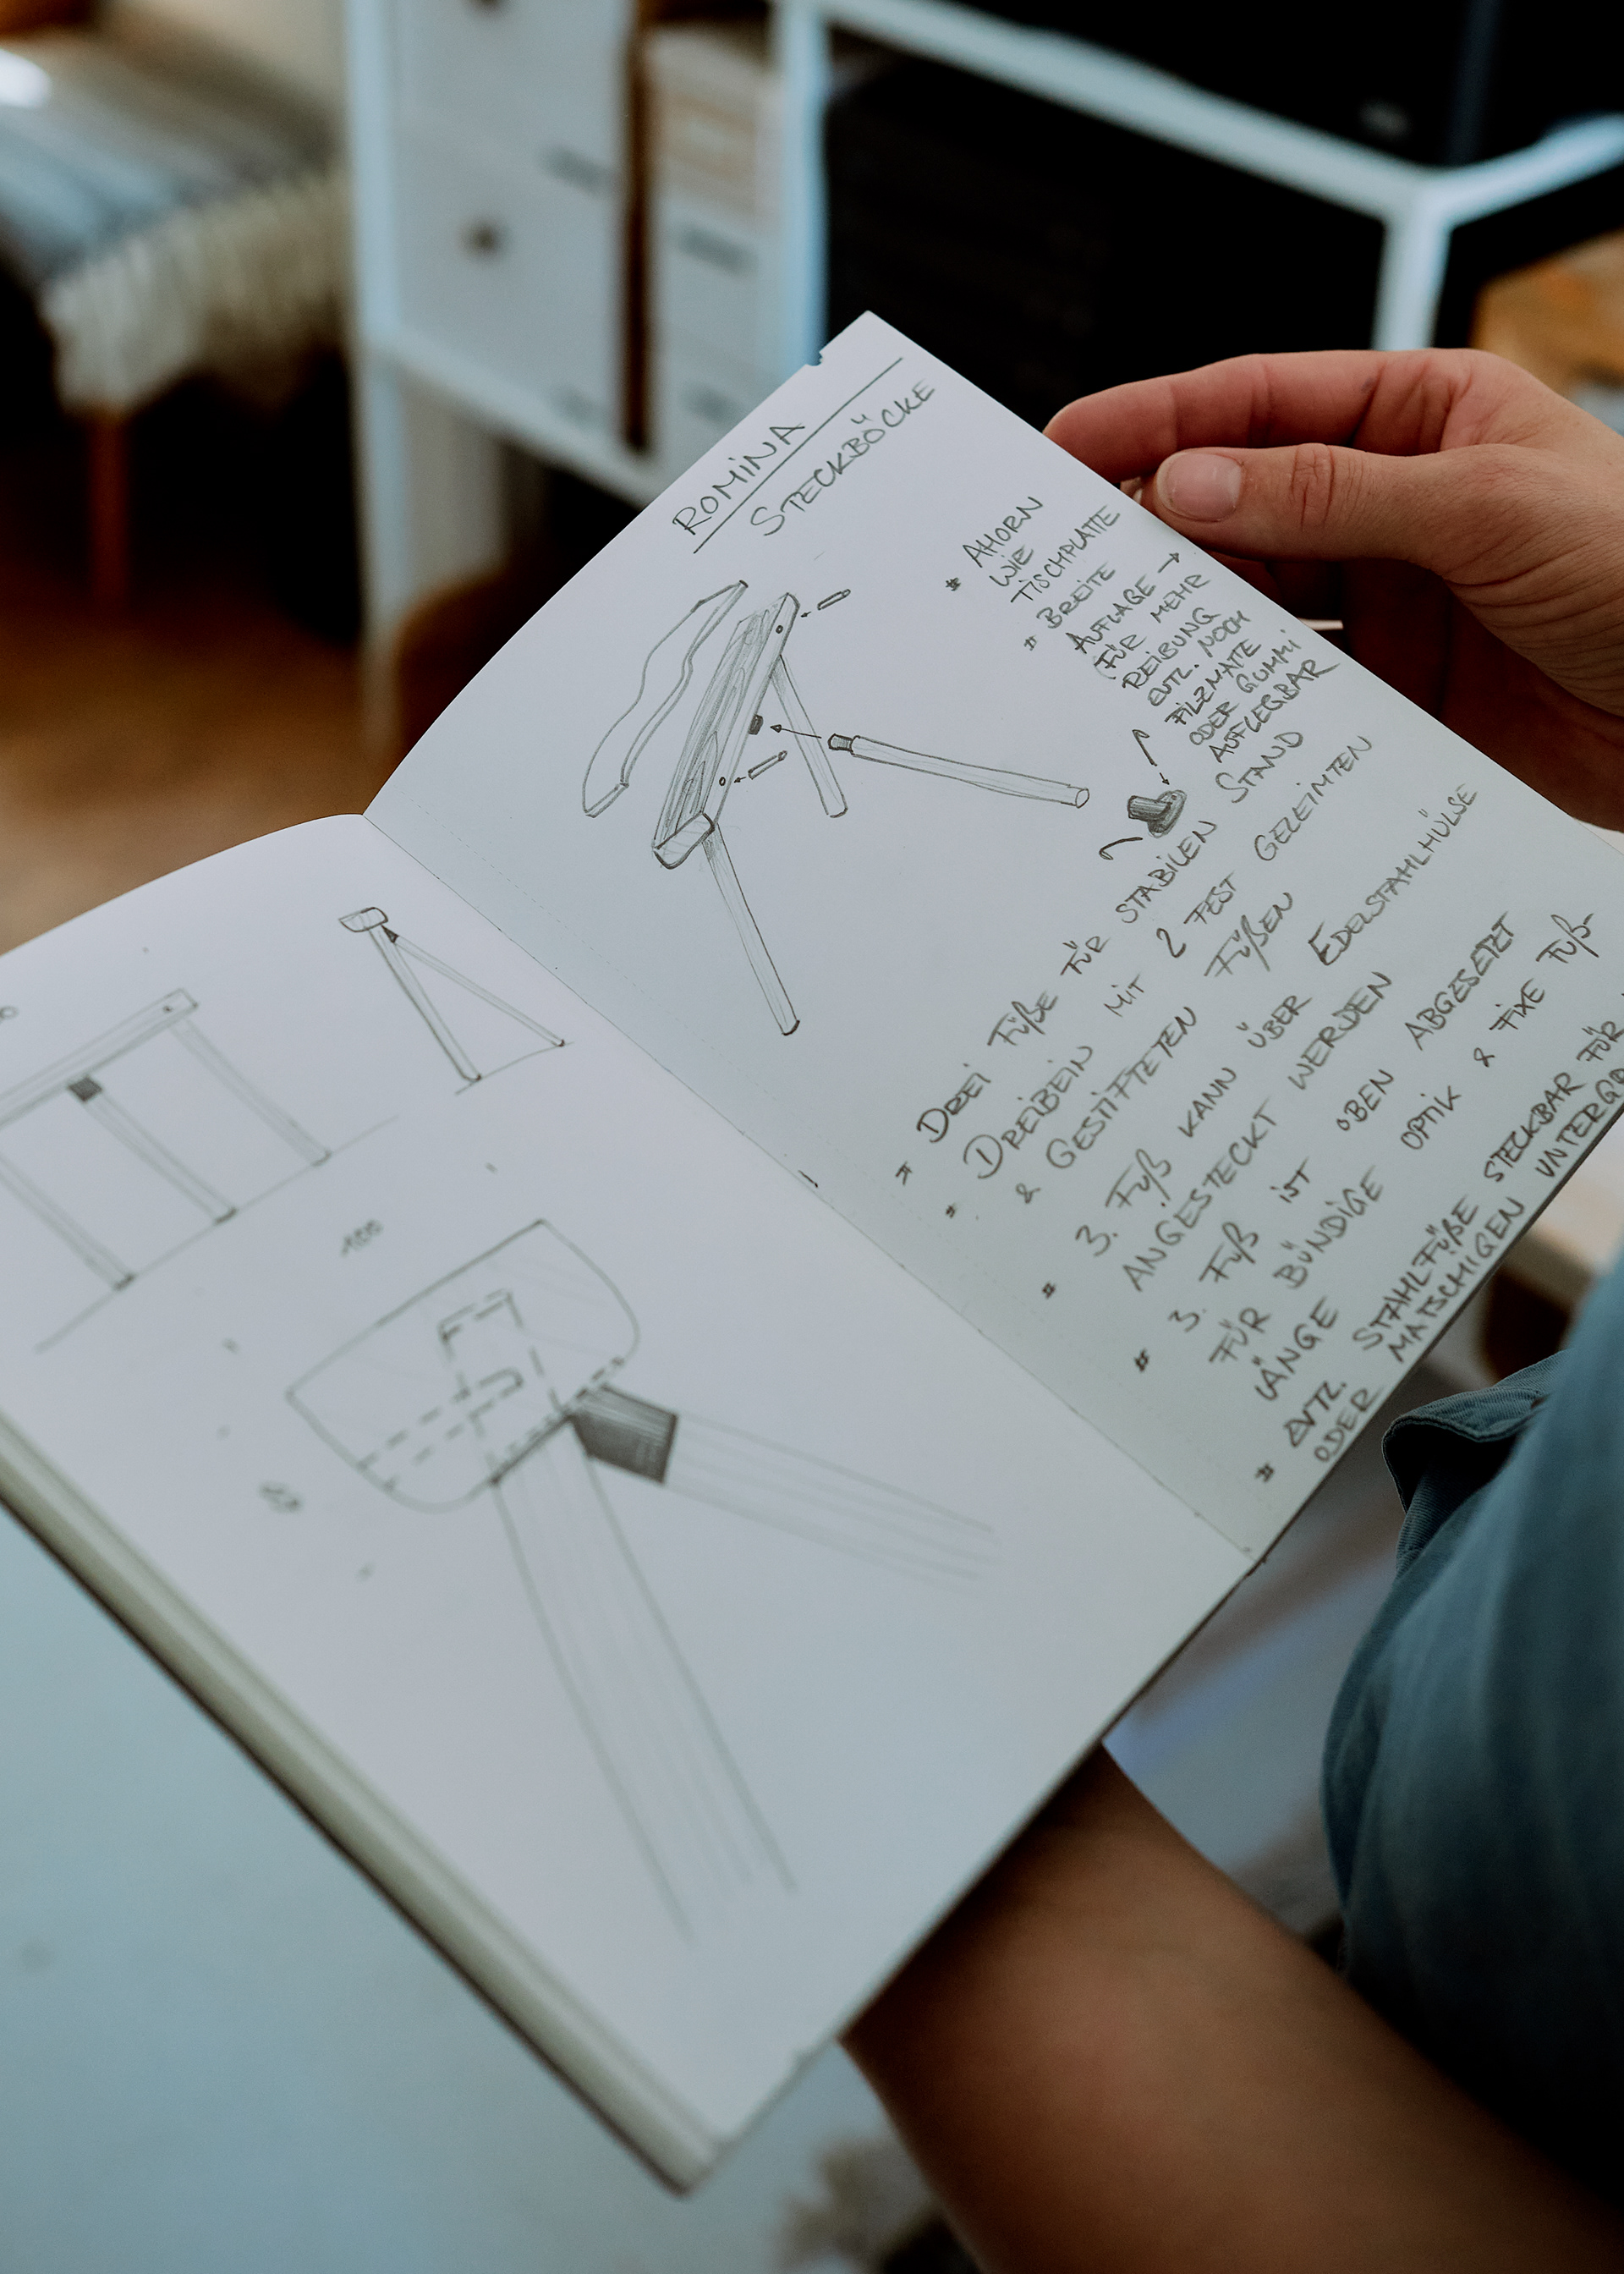 ROMINA
STECKBÖCKE
* AHORN
WIE
TISCHPLATTE
* BREITE
AUFLAGE →
FÜR MEHR
REIBUNG
EVTL. NOCH
FILZMATE
ODER GUMMI
AUFLEGBAR
* DREI FÜßE FÜR STABILEN STAND
* DREIBEIN MIT 2 FEST GELEIMTEN
& GESTIFTETEN FÜßEN
* 3. FUß KANN ÜBER EDELSTAHLHÜLSE
ANGESTECKT WERDEN
* 3. FUß IST OBEN ABGESETZT
FÜR BÜNDIGE OPTIK & FIXE FUß-
LÄNGE
* EVTL. STAHLFÜßE STECKBAR FÜR
ODER MATSCHIGEN